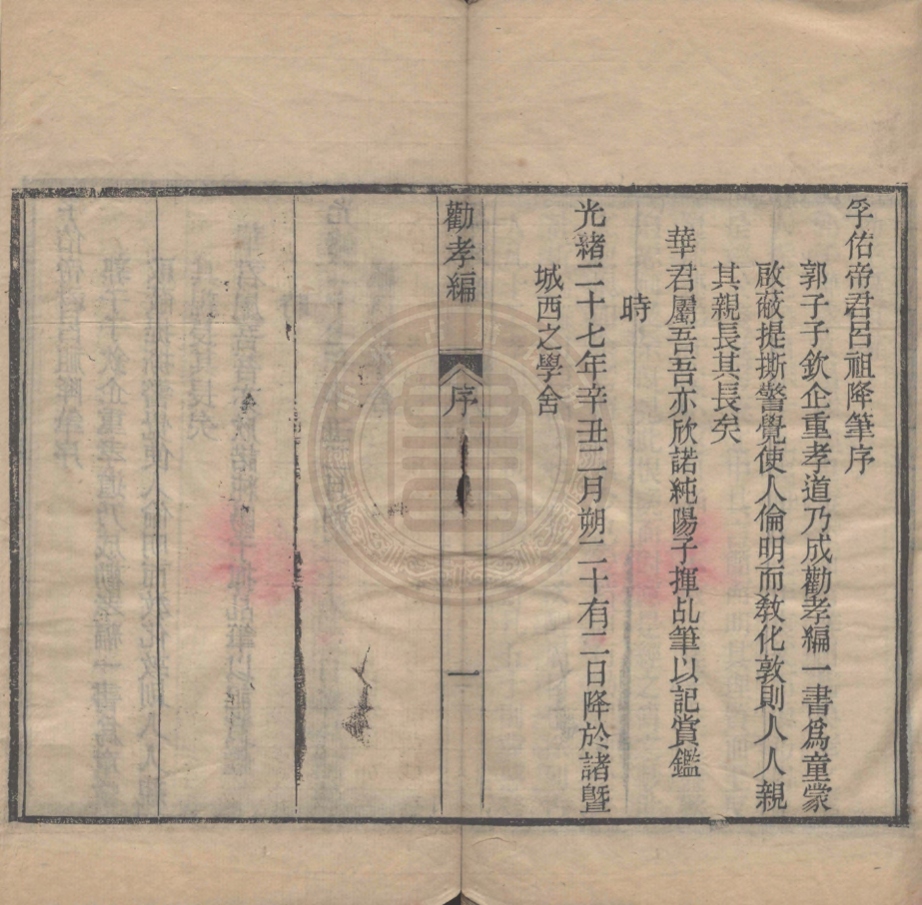 孚佑帝君呂祖降筆序
郭子子欽企重孝道乃成勸孝編一書爲童蒙
啟蔽提撕警覺使人倫明而敎化敦則人人親
其親長其長矣
華君屬吾吾亦欣諾純陽子揮乩筆以記賞鑑
時
光緖二十七年辛丑二月朔二十有二日降於諸暨
城西之學舍
勸孝編
序
一